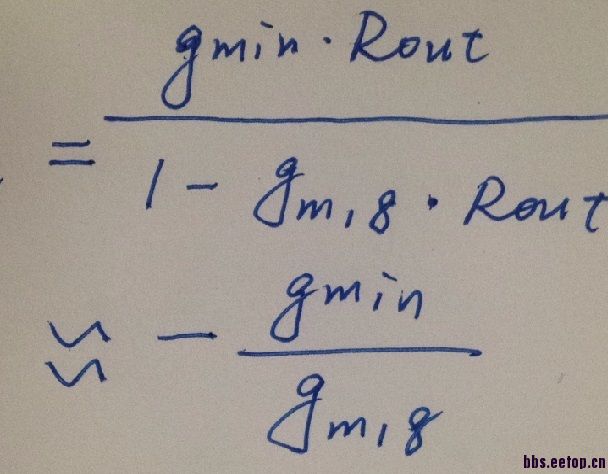 gmin · Rout
=
1 - gm,8 · Rout
≈ - gmin
gm,8
bbs.eetop.cn